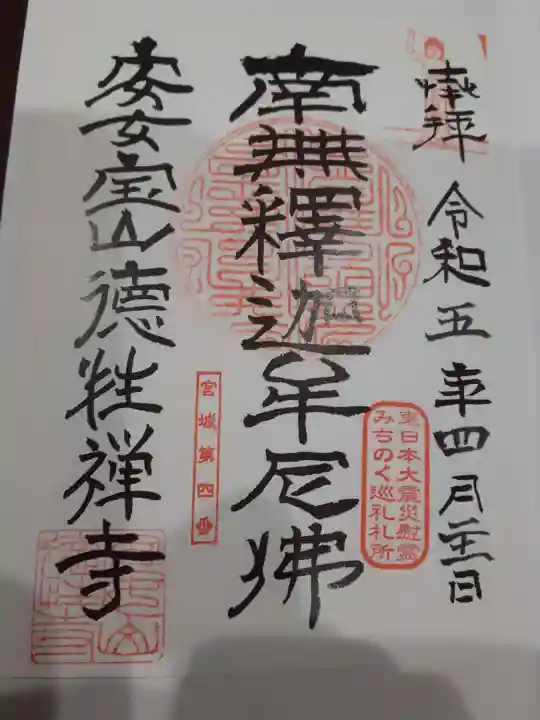 奉拝 令和五年四月 日
東日本大震災慰霊
みちのく巡礼札所
南無釋迦牟尼佛
宮城第四番
宝山徳性禅寺